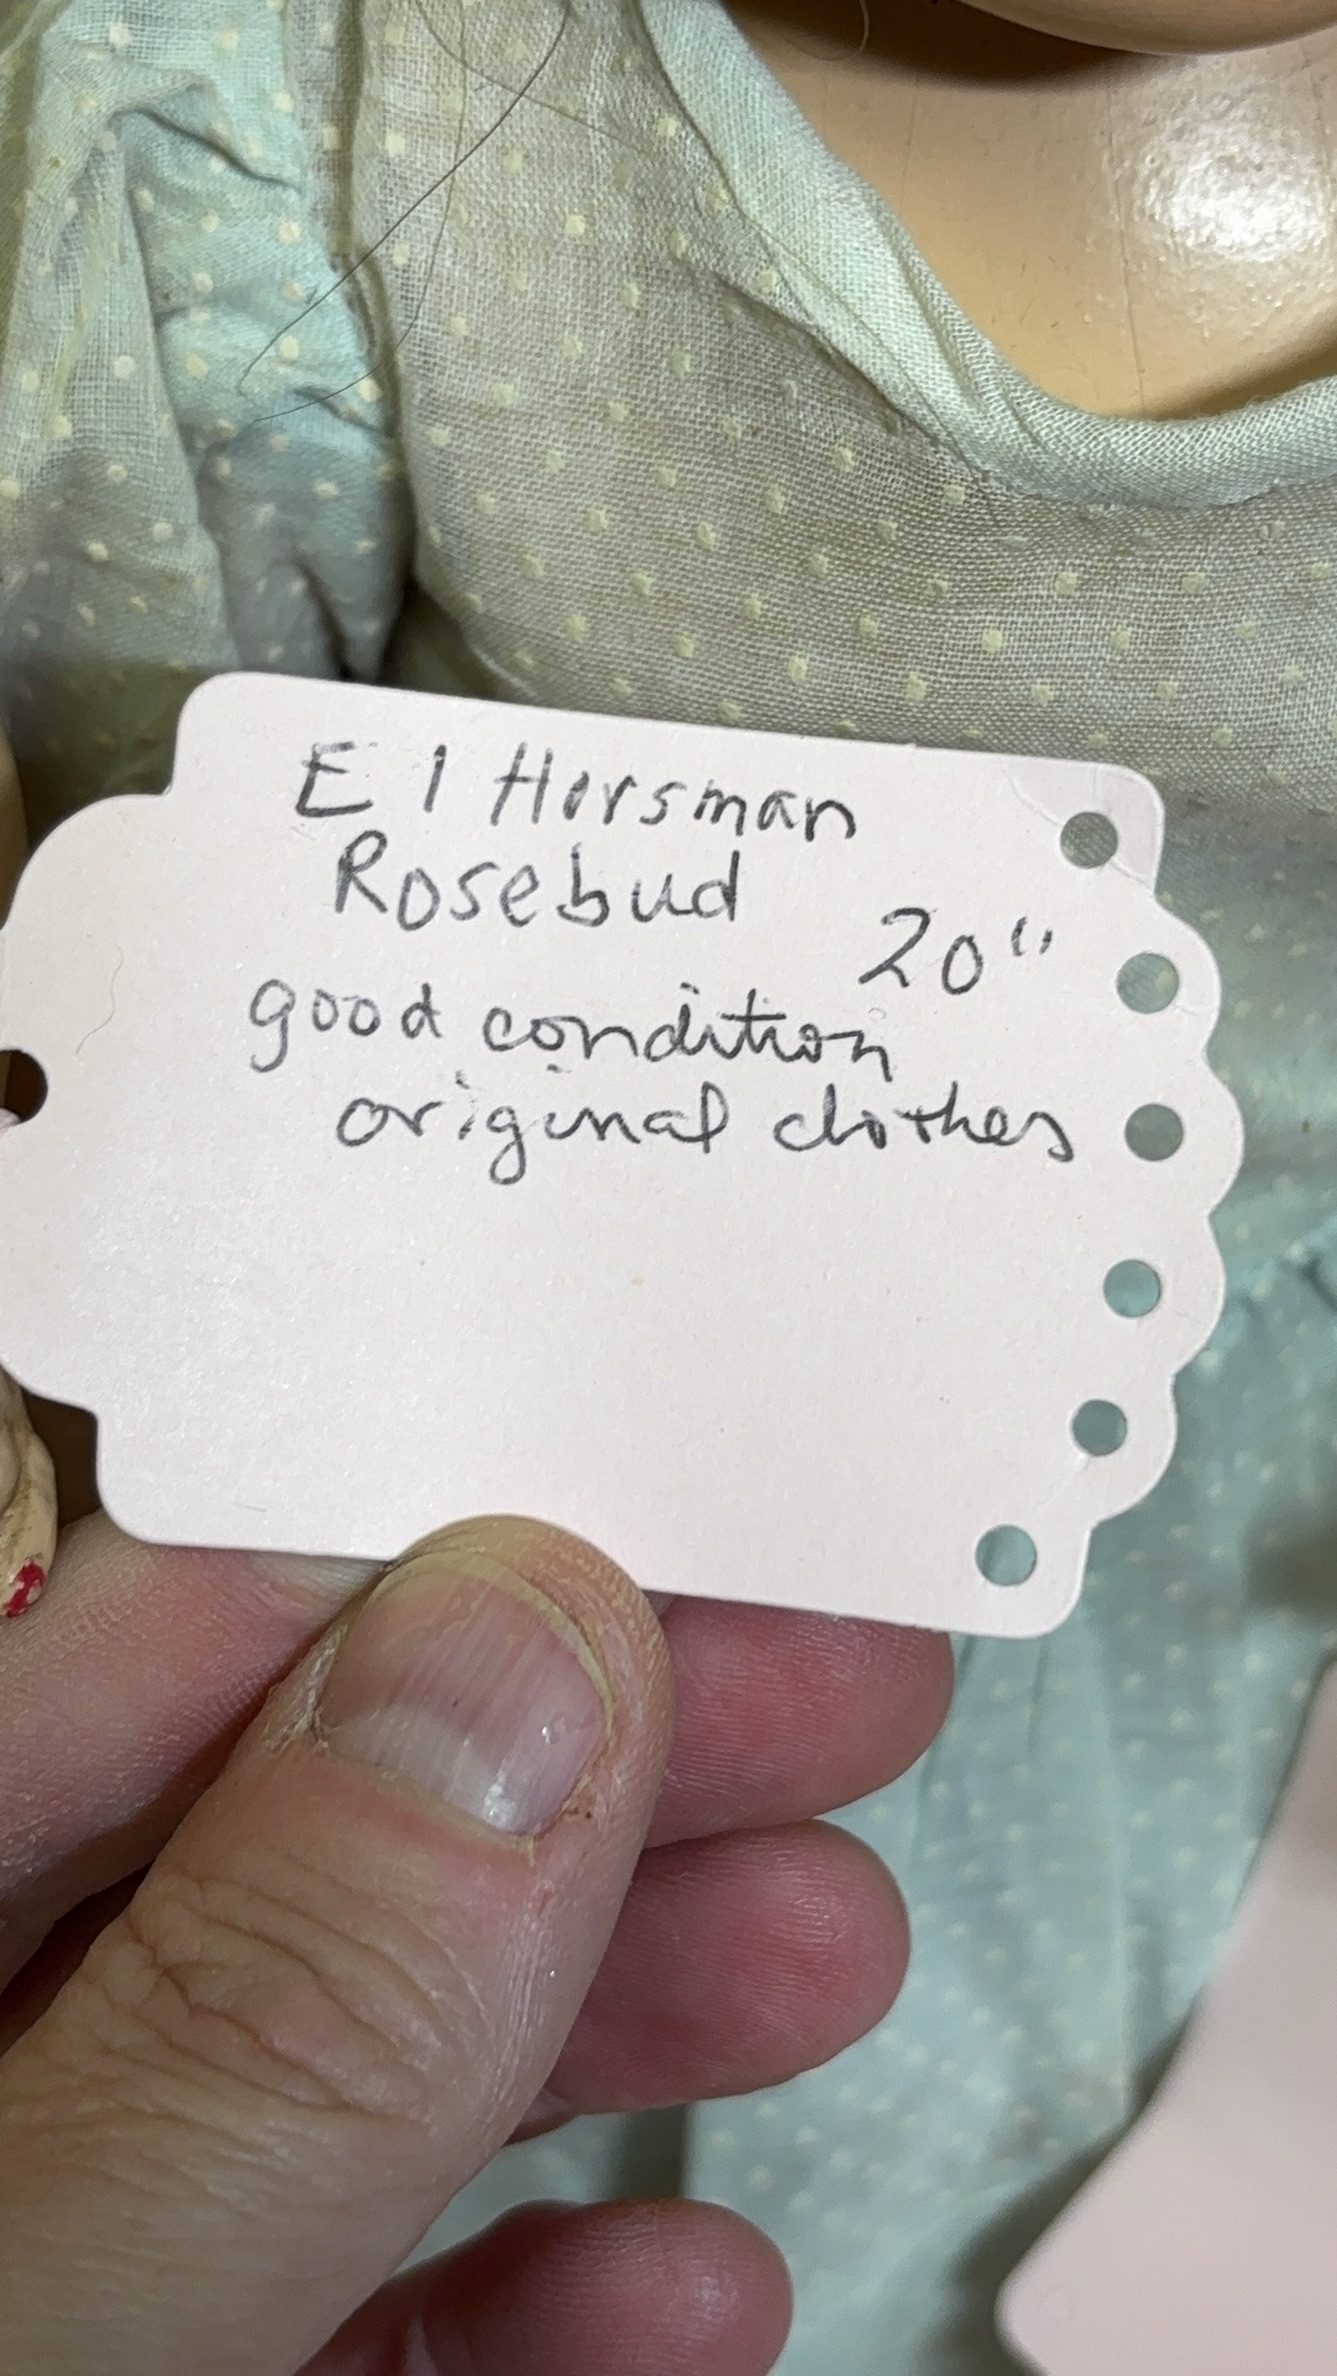 E I Horsman
Rosebud
20"
good condition
original clothes